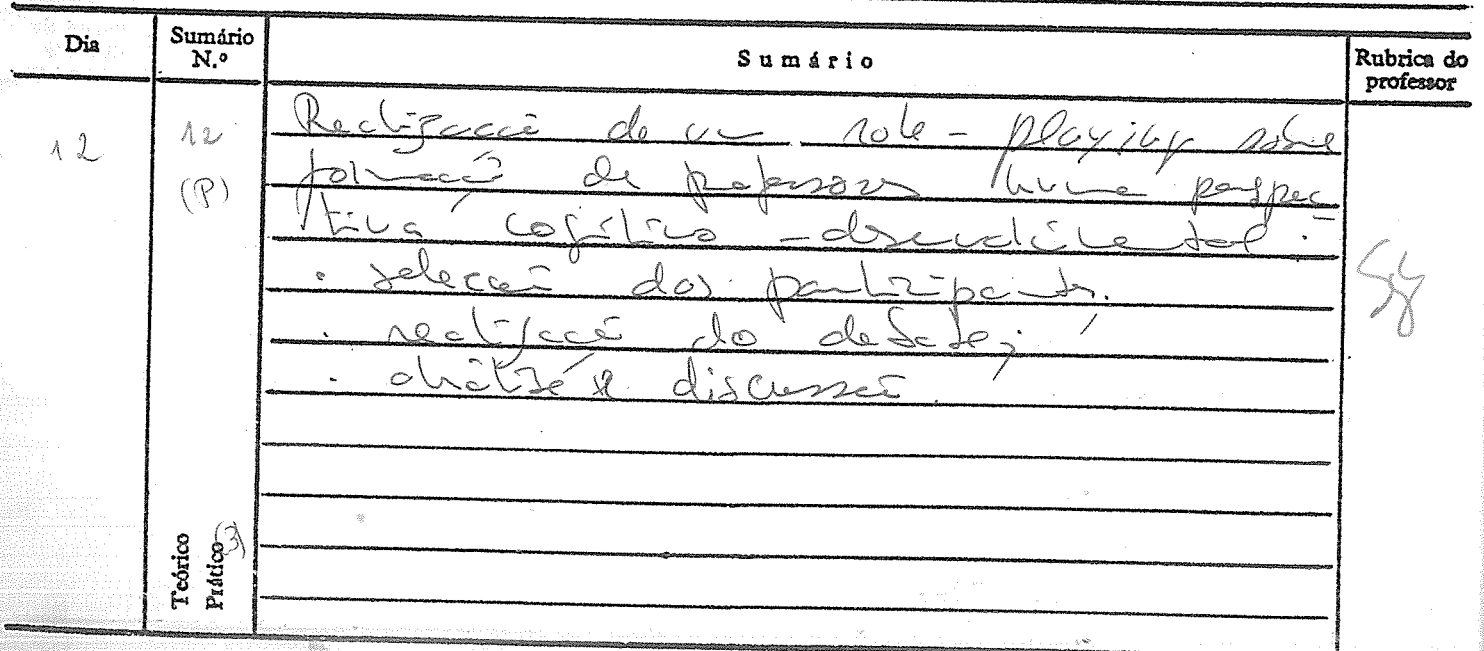 Dia
Sumário N.º
Sumário
Rubrica do professor
12
12
(P)
Realização de um role-playing sobre
formação de professores numa perspec-
tiva cognitivo-desenvolvimental:
. selecção dos participantes.
. realização do debate;
. análise e discussão.
Teórico
Prático (3)